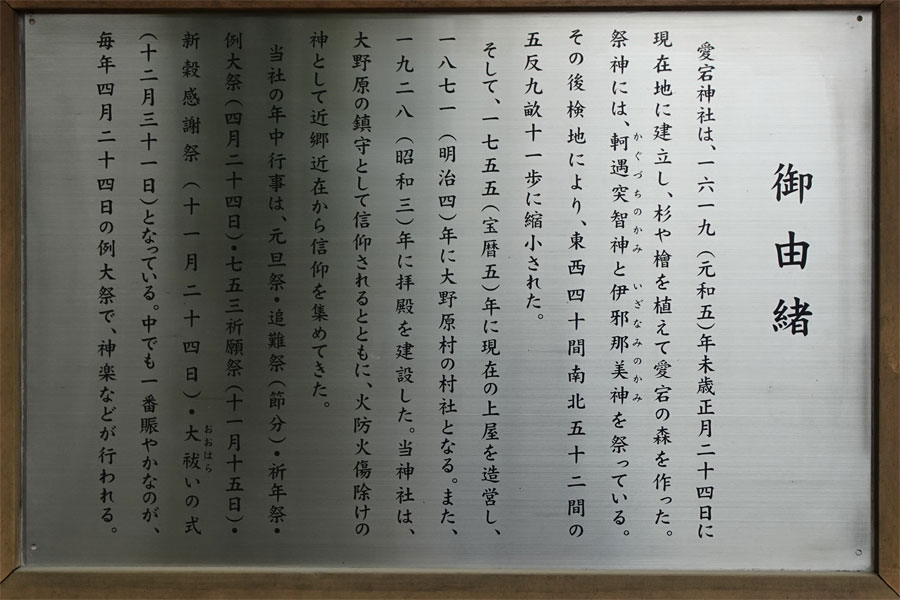 御由緒
愛宕神社は、一六一九（元和五）年未歳正月二十四日に
現在地に建立し、杉や檜を植えて愛宕の森を作った。
かぐづちのかみ　いざなみのかみ
祭神には、軻遇突智神と伊邪那美神を祭っている。
その後検地により、東西四十間南北五十二間の
五反九畝十一歩に縮小された。
そして、一七五五（宝暦五）年に現在の上屋を造営し、
一八七一（明治四）年に大野原村の村社となる。また、
一九二八（昭和三）年に拝殿を建設した。当神社は、
大野原の鎮守として信仰されるとともに、火防火傷除けの
神として近郷近在から信仰を集めてきた。
当社の年中行事は、元旦祭・追難祭（節分）・祈年祭・
例大祭（四月二十四日）・七五三祈願祭（十一月十五日）・
おおはら
新穀感謝祭（十一月二十四日）・大祓いの式
（十二月三十一日）となっている。中でも一番賑やかなのが、
毎年四月二十四日の例大祭で、神楽などが行われる。